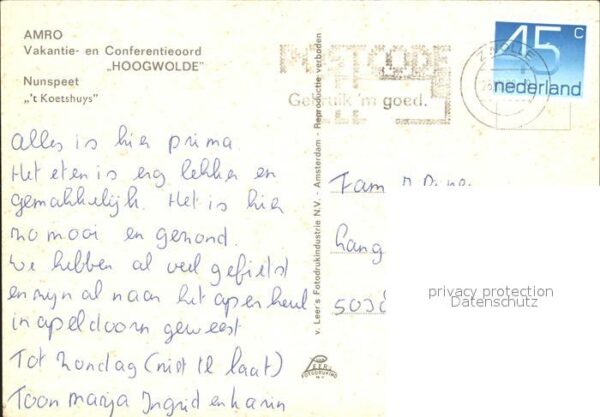 AMRO
Vakantie- en Conferentieoord
„HOOGWOLDE"
Nunspeet
„'t Koetshuys"
Alles is hier prima.
Het eten is erg lekker en
gemakkelijk. Het is hier
zo mooi en gezond.
We hebben al veel gefietst
en zijn al naar het apenheul
in apeldoorn geweest
Tot Zondag (niet te laat)
Toon Marja Ingrid en Karin
v. Leer's Fotodrukindustrie N.V. - Amsterdam - Reproductie verboden
LEER'S
FOTODRUKIND
N.V.
POSTCODE
Gebruik 'm goed.
ZWOLLE
45 c
nederland
Fam
Lang
5038
privacy protection
Datenschutz